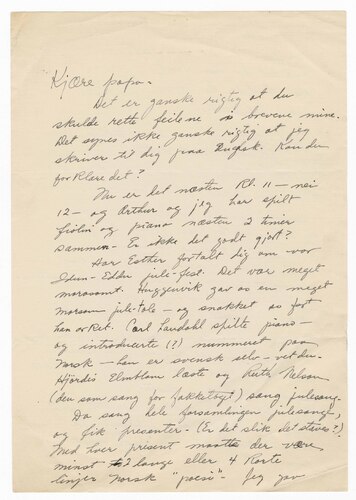 Kjære papa.
Det er ganske rigtig at du
skulde rette feilene i brevene mine.
Det synes ikke ganske rigtig at jeg
skriver til dig paa Engelsk. Kan du
forklare det?
Nu er det næsten Kl. 11 — nei
12 — og Arthur og jeg har spilt
fiolin og piano næsten 2 timer
sammen. Er ikke det godt gjort?
Har Esther fortalt dig om vor
Idun-Edda jule-fest. Det var meget
morosomt. Huggenvik gav os en meget
morsom jule-tale — og snakket as fort
han orket. Carl Landahl spilte piano —
og introducerte (?) nummeret paa
Norsk — han er svensk selv — vet du.
Hjördis Elmblom læste og Ruth Nelson
(den som sang for fakkeltoget) sang julesang.
Da sang hele forsamlingen julesange,
og fik presenter. (Er det slik det staves?)
Med hver present maatte der være
minst 2 lange eller 4 korte
linjer Norsk "poesi". Jeg gav